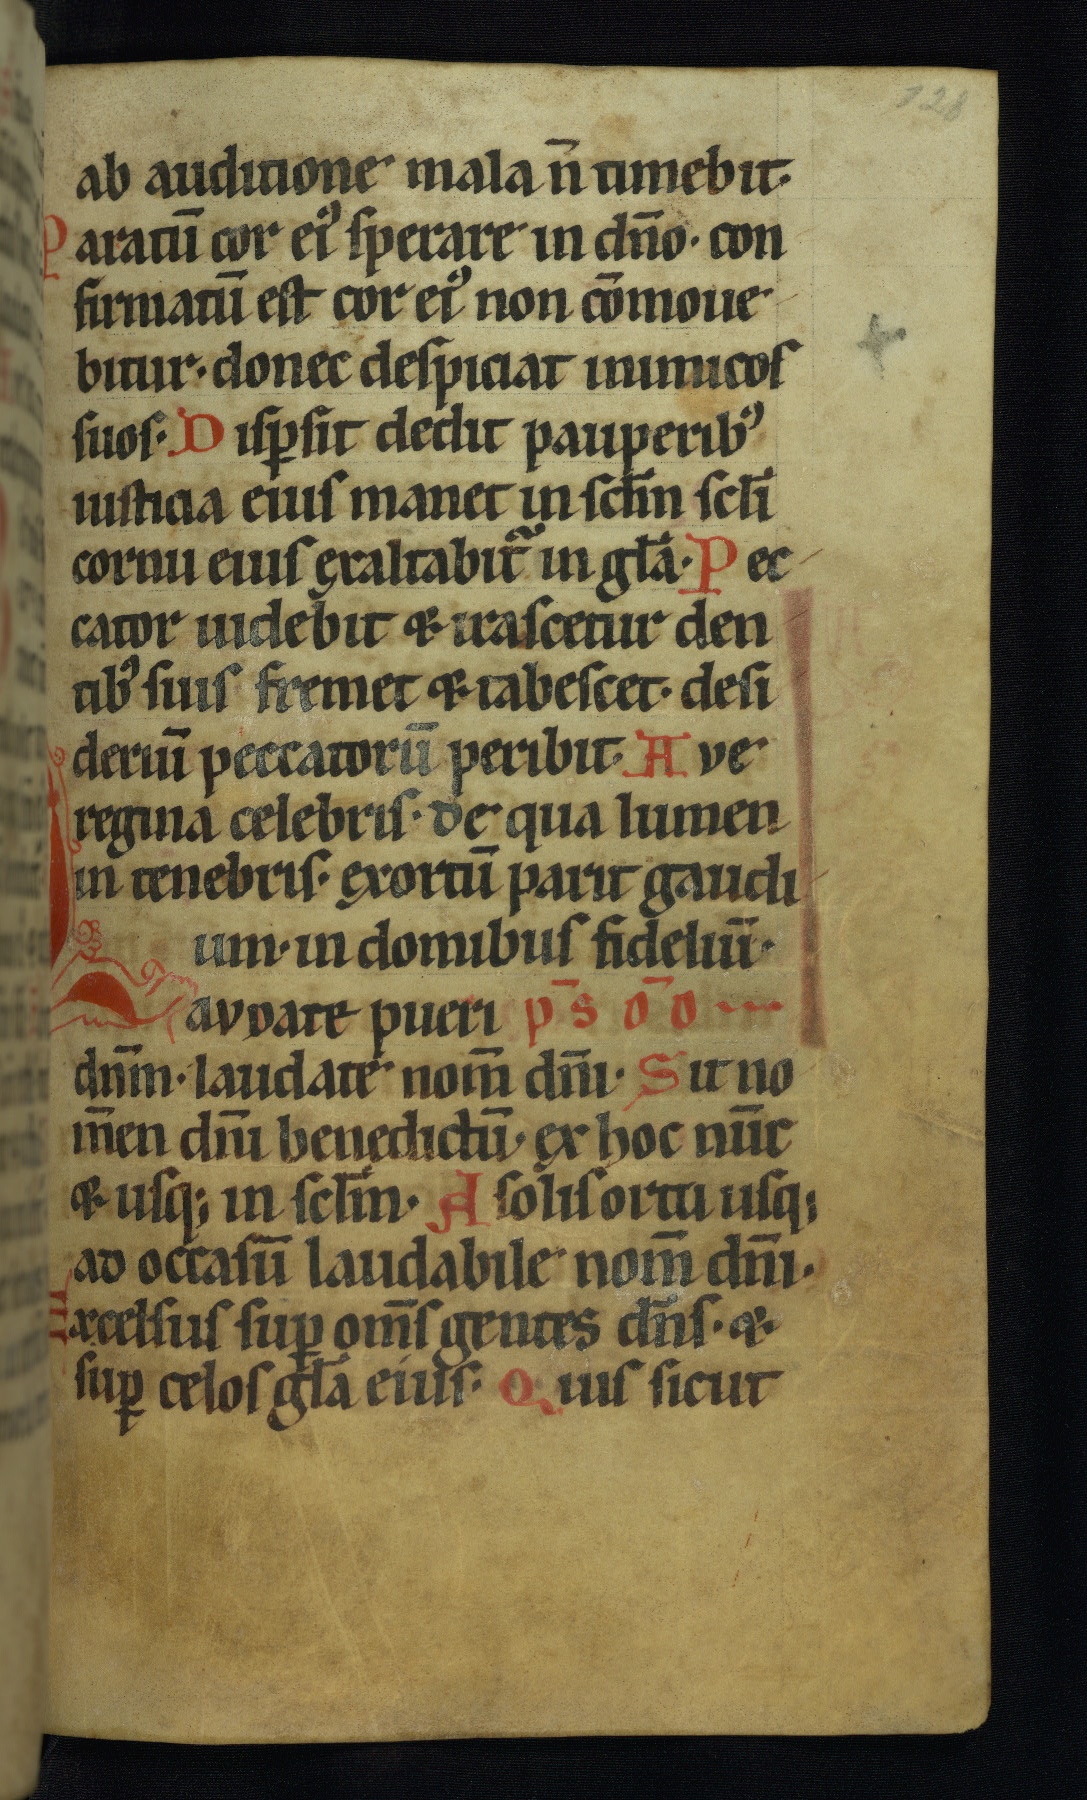 128
ab auditione mala n̄ timebit·
Paratū cor eiꝰ sperare in dn̄o· con
firmatū est cor eiꝰ non cōmoue
bitur· donec despiciat inimicos
suos· Disꝑsit dedit pauperibꝰ
iusticia eius manet in sc̄lm sc̄li
cornu eius exaltabit᷑ in gl̄a· Pec
cator uidebit & irascetur den
tibꝰ suis fremet & tabescet· desi
deriū peccatorū peribit· Ave
regina celebris· de qua lumen
in tenebris· exortū parit gaudi
um· in domibus fideliū·
Lavdate pueri p̄s d̄d
dn̄m· laudate nom̄ dn̄i· Sit no
m̄en dn̄i benedictū· ex hoc nūc
& usq; in sc̄lm· A solis ortu usq;
ad occasū laudabile nom̄ dn̄i·
Excelsus suꝑ om̄s gentes dn̄s· &
suꝑ celos gl̄a eius· Quis sicut